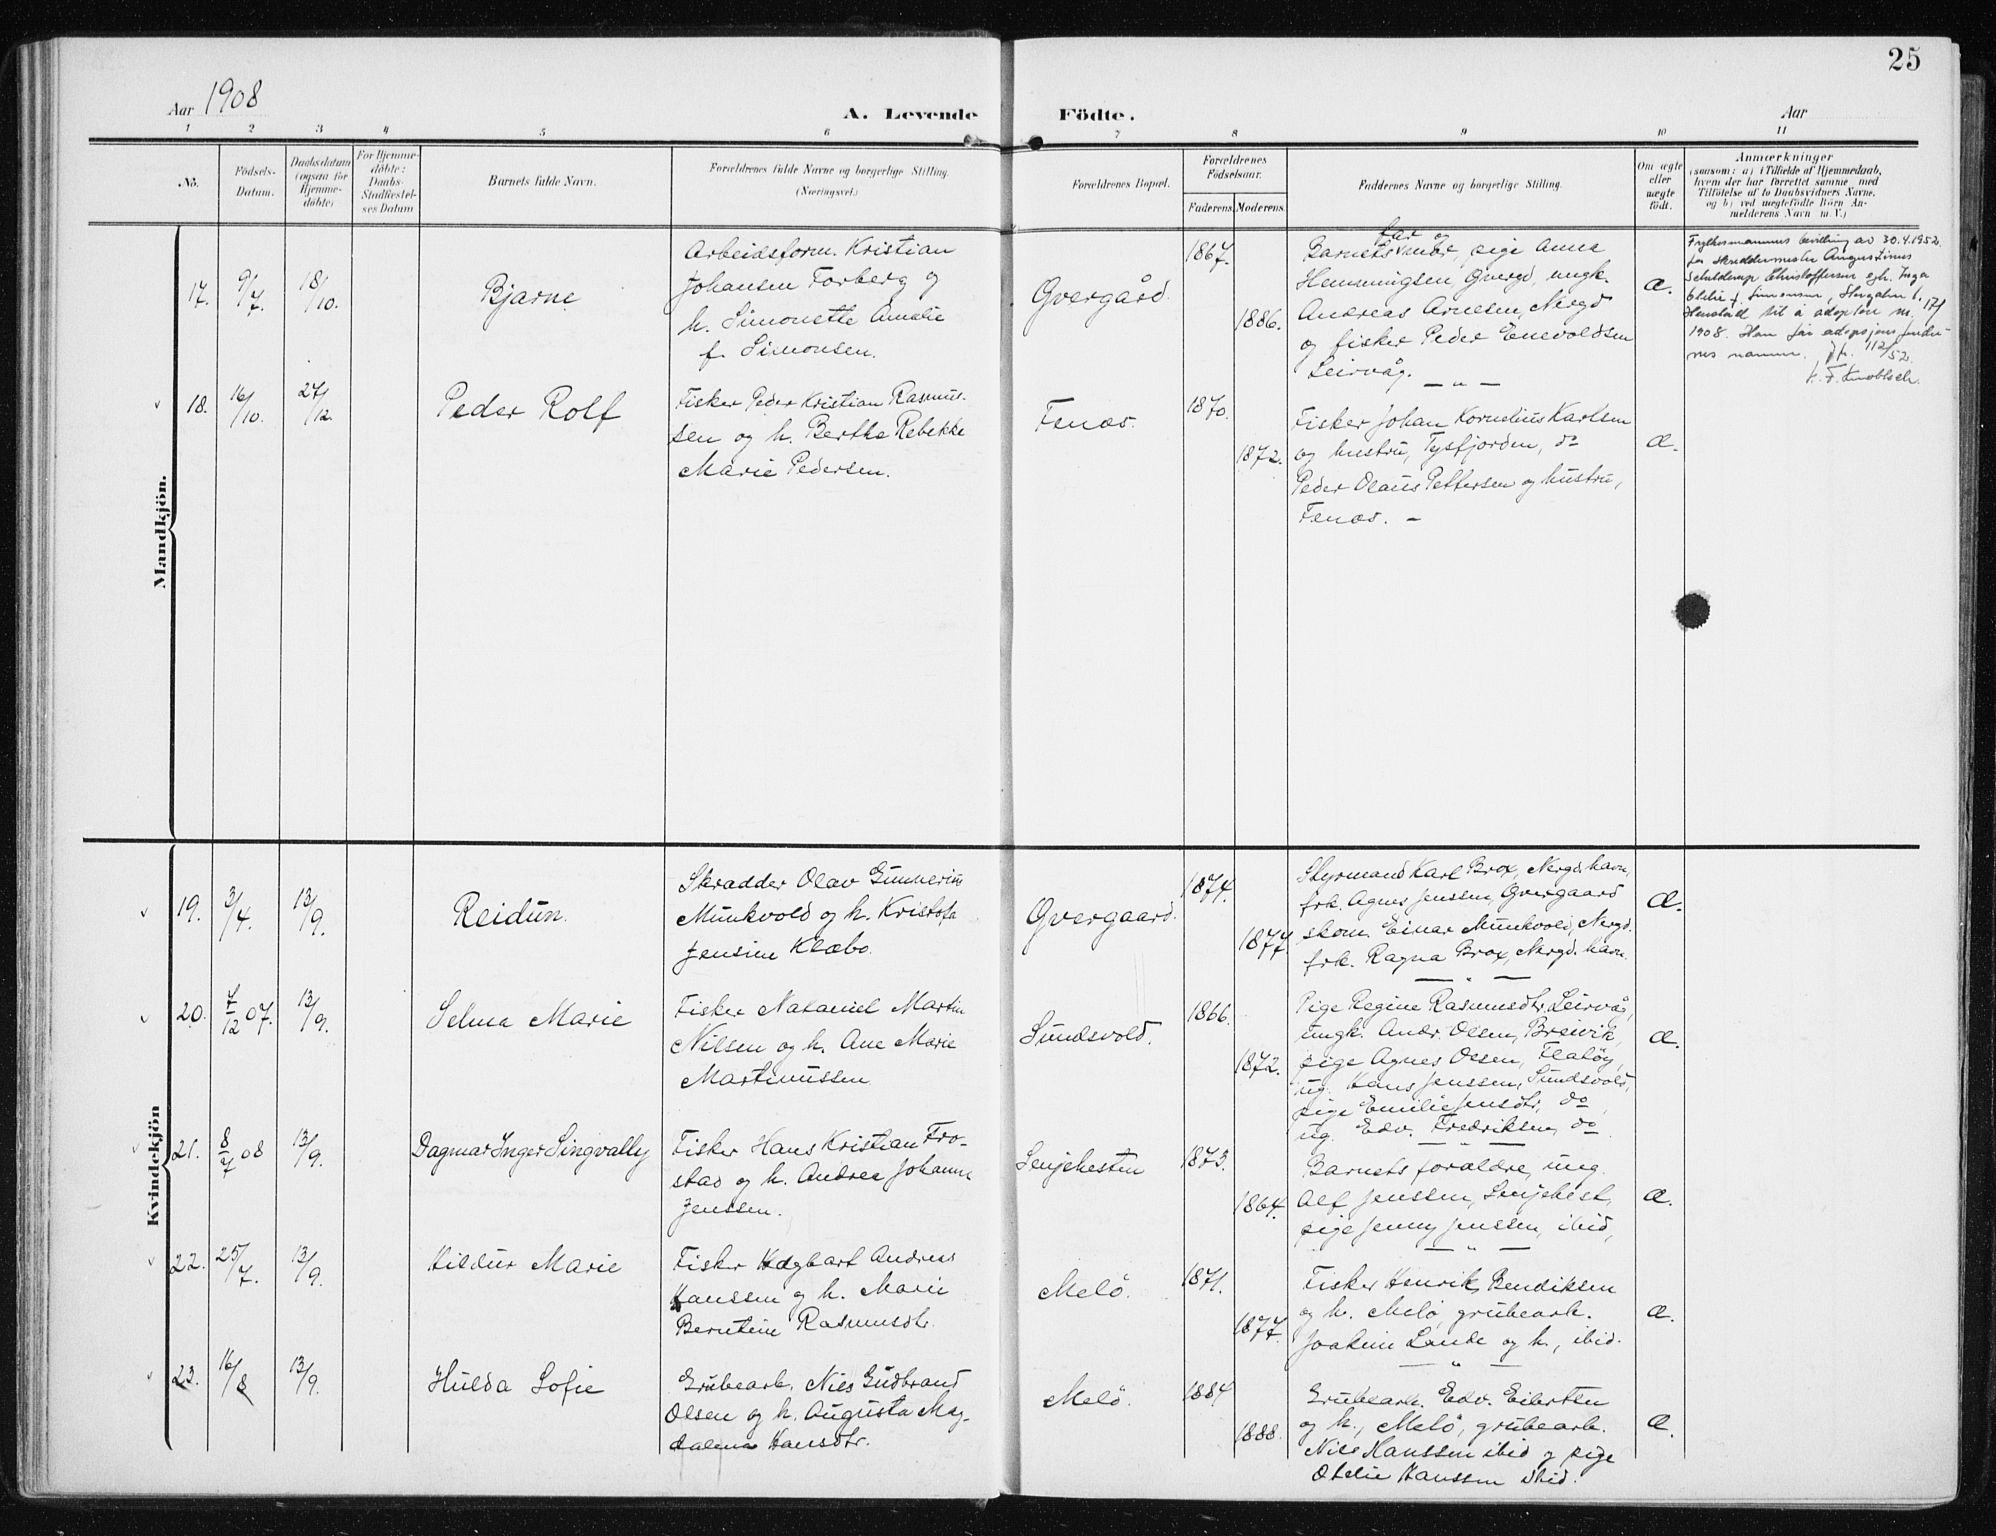 25
Aar 1908
A. Levende Födte.
Aar
1 2 3 4 5 6 7 8 9 10 11
No.
Födsels-Datum.
Daabsdatum (ogsaa for Hjemme-döbte)
For Hjemme-döbte: Daabs-Stadfæstel-ses Datum
Barnets fulde Navn.
Forældrenes fulde Navne og borgerlige Stilling. (Næringsvei.)
Forældrenes Bopæl.
Forældrenes Födselsaar.
Faderens. Moderens.
Faddernes Navne og borgerlige Stilling.
Om ægte eller uægte födt.
Anmærkninger
(saasom: a) i Tilfælde af Hjemmedaab,
hvem der har forrettet samme med
Tilföielse af to Daabsvidners Navne,
og b) ved uægtefödte Börn An-
melderens Navn m. V.)
Mandkjön.
17. 9/7. 18/10.
Bjarne
Arbeidsform. Kristian
Johansen Forberg og
h. Simonette Amalie
f. Simonsen.
Gvergård.
1867.
1886.
far og
Barnets moder, pige Anna
Henningsen, Gvergd, ungk.
Andreas Arnesen, Nergd
og fisker Peder Enevoldsen
Leirvåg.
— " —
æ.
Fylkesmannens bevilling av 30.4.1952
for skreddermester Augustinus
Schulderup Christoffersen og h. Inga
f. Simonsen,
til å adoptere nr. 17/
1908. Han får adopsjonsforeldre-
nes navnn. Jfr. 112/52.
18. 16/10. 27/12.
Peder Rolf
Fisker Peder Kristian Rasmus-
sen og h. Berthe Rebekke
Marie Pedersen.
Fenæs.
1870.
1872.
Fisker Johan Kornelius Karlsen
og hustru, Tysfjorden, do
Peder Olaus Pettersen og hustru,
Fenæs. –
æ.
Kvindekjön
19. 3/4. 13/9.
Reidun.
Skrædder Olav Gunnerius
Munkvold og h. Kristofa
Jensine Klæbo.
Gvergaard.
1874.
1877.
Styrmand Karl Brox, Nergd.havn,
frk. Agnes Jenssen, Gvergaard
skom. Einar Munkvold, Nergd.
frk. Ragna Brox, Nergd.havn.
— " —
æ.
20. 7/12 07. 13/9.
Selma Marie
Fisker Nataniel Martin
Nilsen og h. Ane Marie
Martinussen
Sundsvold.
1866.
1872.
Pige Regine Rasmusdtr, Leirvåg,
ungk. Andr. Olsen, Breivik,
pige Agnes Olsen, Flatöy,
ug. Hans Jenssen, Sundsvold,
pige Emilie Jensdtr, do,
ug. Edv. Fredriksen, do.
æ.
21. 8/7 08 13/9.
Dagmar Inger Singvally
Fisker Hans Kristian Fro-
stad og h. Andrea Johanna
Jenssen.
Senjehesten
1873.
1864.
Barnets forældre, ung.
Alf Jenssen, Senjehest,
pige Jenny Jenssen, ibid,
— " —
æ.
22. 25/7. 13/9.
Hildur Marie
Fisker Hagbart Andreas
Hanssen og h. Marie
Berntine Rasmusdtr.
Melö.
1871.
1877.
Fisker Henrik Bendiksen
og h. Melö, grubearb.
Joakim Lande og h., ibid.
— " —
æ.
23. 16/8 13/9.
Hulda Sofie
Grubearb. Nils Gudbrand
Olsen og h. Augusta Mag-
dalena Hansdtr.
Melö.
1884
1888.
Grubearb. Edv. Eibertsen
og h., Melö, grubearb.
Nils Hanssen ibid og pige
Otelie Hanssen ibid.
æ.